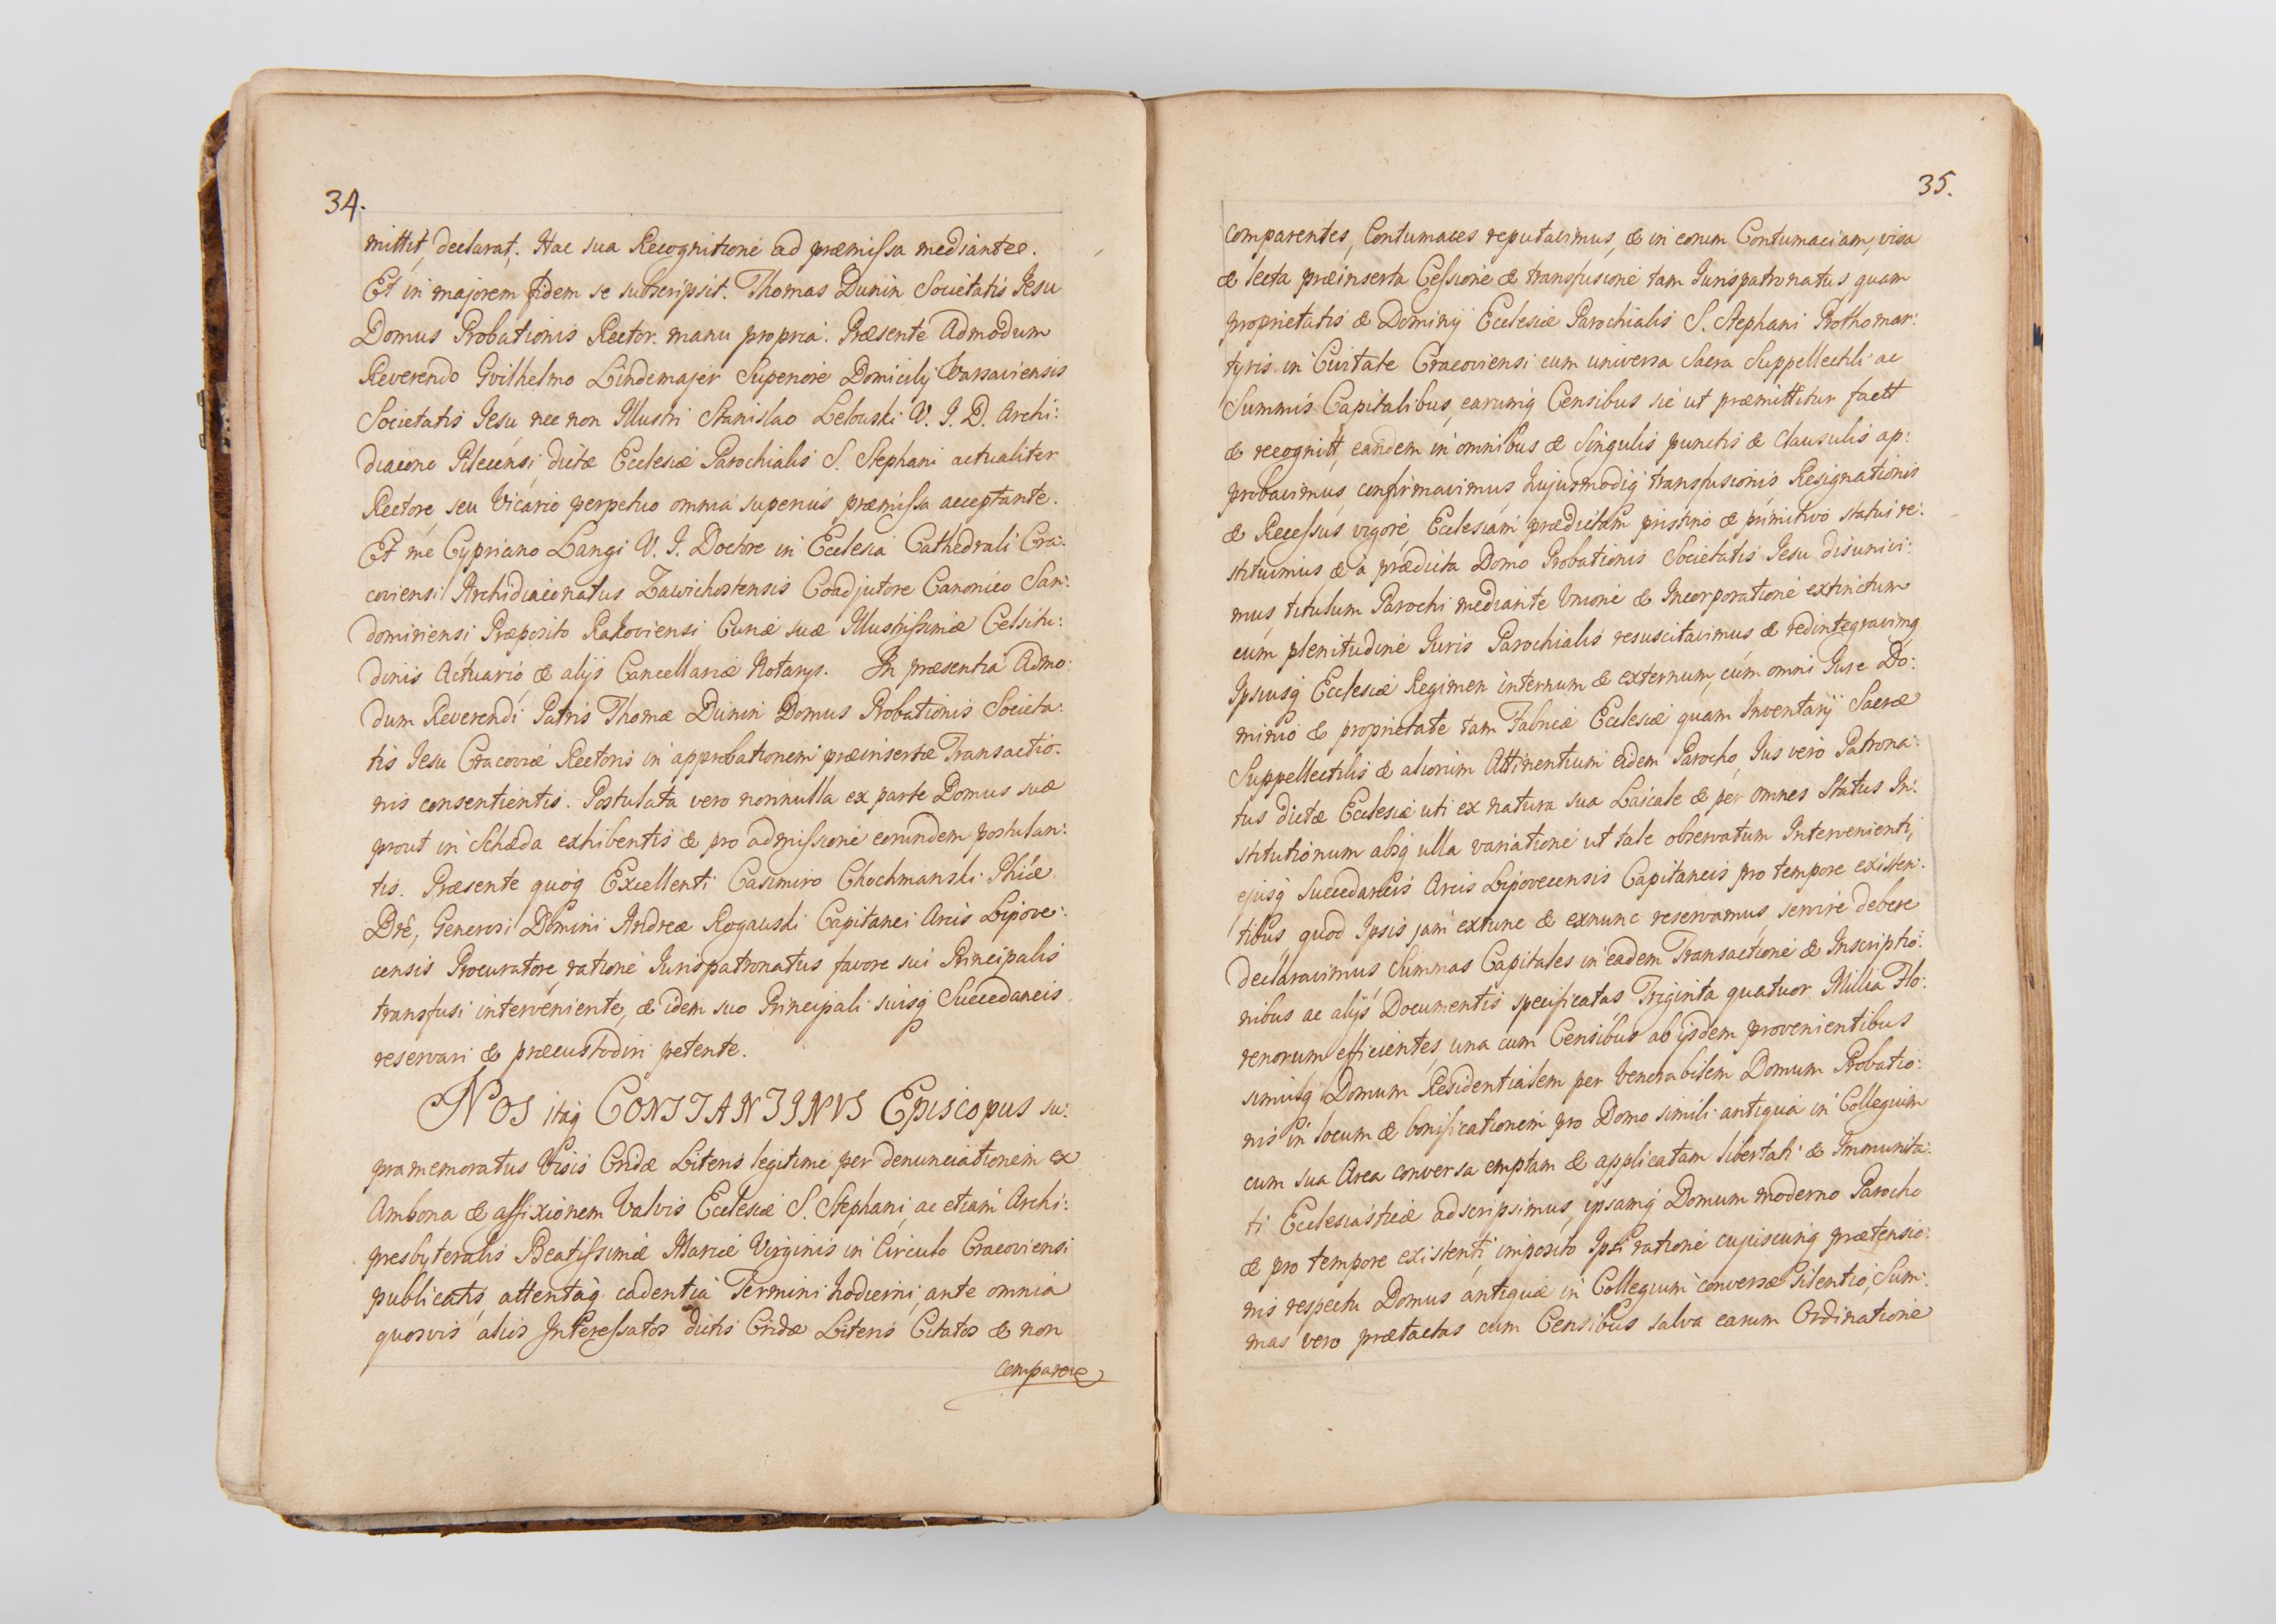 34.
mittit, declarat. Hac sua Recognitione ad præmissa mediante.
Et in majorem fidem se subscripsit. Thomas Dunin Societatis Jesu
Domus Probationis Rector. manu propria. Præsente Admodum
Reverendo Gvilhelmo Lindemajer Superiore Domicilij Varsaviensis
Societatis Jesu, nec non Illustri Stanislao Lelowski V. J. D. Archi:
diacono Pilecensi dictæ Ecclesiæ Parochialis S. Stephani actualiter
Rectore, seu Vicario perpetuo omnia superius præmissa acceptante.
Et me Cypriano Langi V. J. Doctore in Ecclesia Cathedrali Cra:
coviensi Archidiaconatus Zawichostensis Coadjutore Canonico San:
domiriensi Præposito Rakoviensi Curiæ suæ Illustrissimæ Celsitu:
dinis Actuario, & alijs Cancellariæ Notarys. In præsentia Admo:
dum Reverendi Patris Thomæ Dunin Domus Probationis Societa:
tis Jesu Cracoviæ Rectoris in approbationem præinsertæ Transactio:
nis consentientis. Postulata vero nonnulla ex parte Domus suæ
prout in Scheda exhibentis & pro admissione eorundem postulan:
tis. Præsente quoq Excellenti Casimiro Chochmanski Phiæ
Dre, Generosi Domini Andreæ Rogawski Capitanei Arcis Lipove:
censis Procuratore, ratione Jurispatronatus favore sui Principalis
transfusi interveniente, & idem suo Principali suisq Succedaneis
reservari & præcustodiri petente.
NOS itaq CONSTANTINVS Episcopus su:
pramemoratus Visis Cridæ Literis legitime per denunciationem ex
Ambona & affixionem Valvis Ecclesiæ S. Stephani, ac etiam Archi:
presbyteralis Beatissimæ Mariæ Virginis in Circulo Cracoviensi
publicatis, attentaq cadentia Termini hodierni, ante omnia
quosvis alios Interessatos dictis Cridæ Literis Citatos & non
comparen
35.
comparentes, Contumaces reputavimus, & in eorum Contumaciam, visa
& lecta præinserta Cessione & transfusione tam Jurispatronatus quam
proprietatis & Dominij Ecclesiæ Parochialis S. Stephani Prothomar:
tyris in Civitate Cracoviensi cum universa Sacra Suppellectili ac
Summis Capitalibus, earumq Censibus sic ut præmittitur factt
& recognitt, eandem in omnibus & singulis punctis & clausulis ap:
probavimus, confirmavimus hujusmodiq transfusionis Resignationis
& Recessus vigore, Ecclesiam prædictam pristino & primitivo statui re:
stituimus & à prædicta Domo Probationis Societatis Jesu disunivi:
mus titulum Parochi mediante Unione & Incorporatione extinctum
cum plenitudine Juris Parochialis resuscitavimus & redintegravimq
Ipsiusq Ecclesiæ Regimen internum & externum, cum omni Jure Do:
minio & proprietate tam Fabricæ Ecclesiæ quam Inventarij Sacræ
Suppellectilis & aliorum Attinentium eidem Parocho, Jus vero Patrona:
tus dictæ Ecclesiæ uti ex natura sua Laicale & per omnes Status In:
stitutionum absq ulla variatione ut tale observatum Intervenienti,
ejusq Succedaneis Arcis Lipovecensis Capitaneis pro tempore existen:
tibus, quod Ipsis jam extunc & exnunc reservamus, servire debere
declaravimus, Summas Capitales in eadem Transactione & Inscriptio:
nibus ac alijs Documentis specificatas Triginta quatuor Millia Flo:
renorum efficientes, una cum Censibus ab ijsdem provenientibus
simulq Domum Residentialem per Venerabilem Domum Probatio:
nis in locum & bonificationem pro Domo simili antiqua in Collegium
cum sua Area conversa emptam & applicatam libertati & Immunita:
ti Ecclesiasticæ adscripsimus, ipsamq Domum moderno Parocho
& pro tempore existenti, imposito Ipsi ratione cujuscunq prætensio:
nis respectu Domus antiquæ in Collegium conversæ Silentio, Sum:
mas vero prætactas cum Censibus salva earum Ordinatione